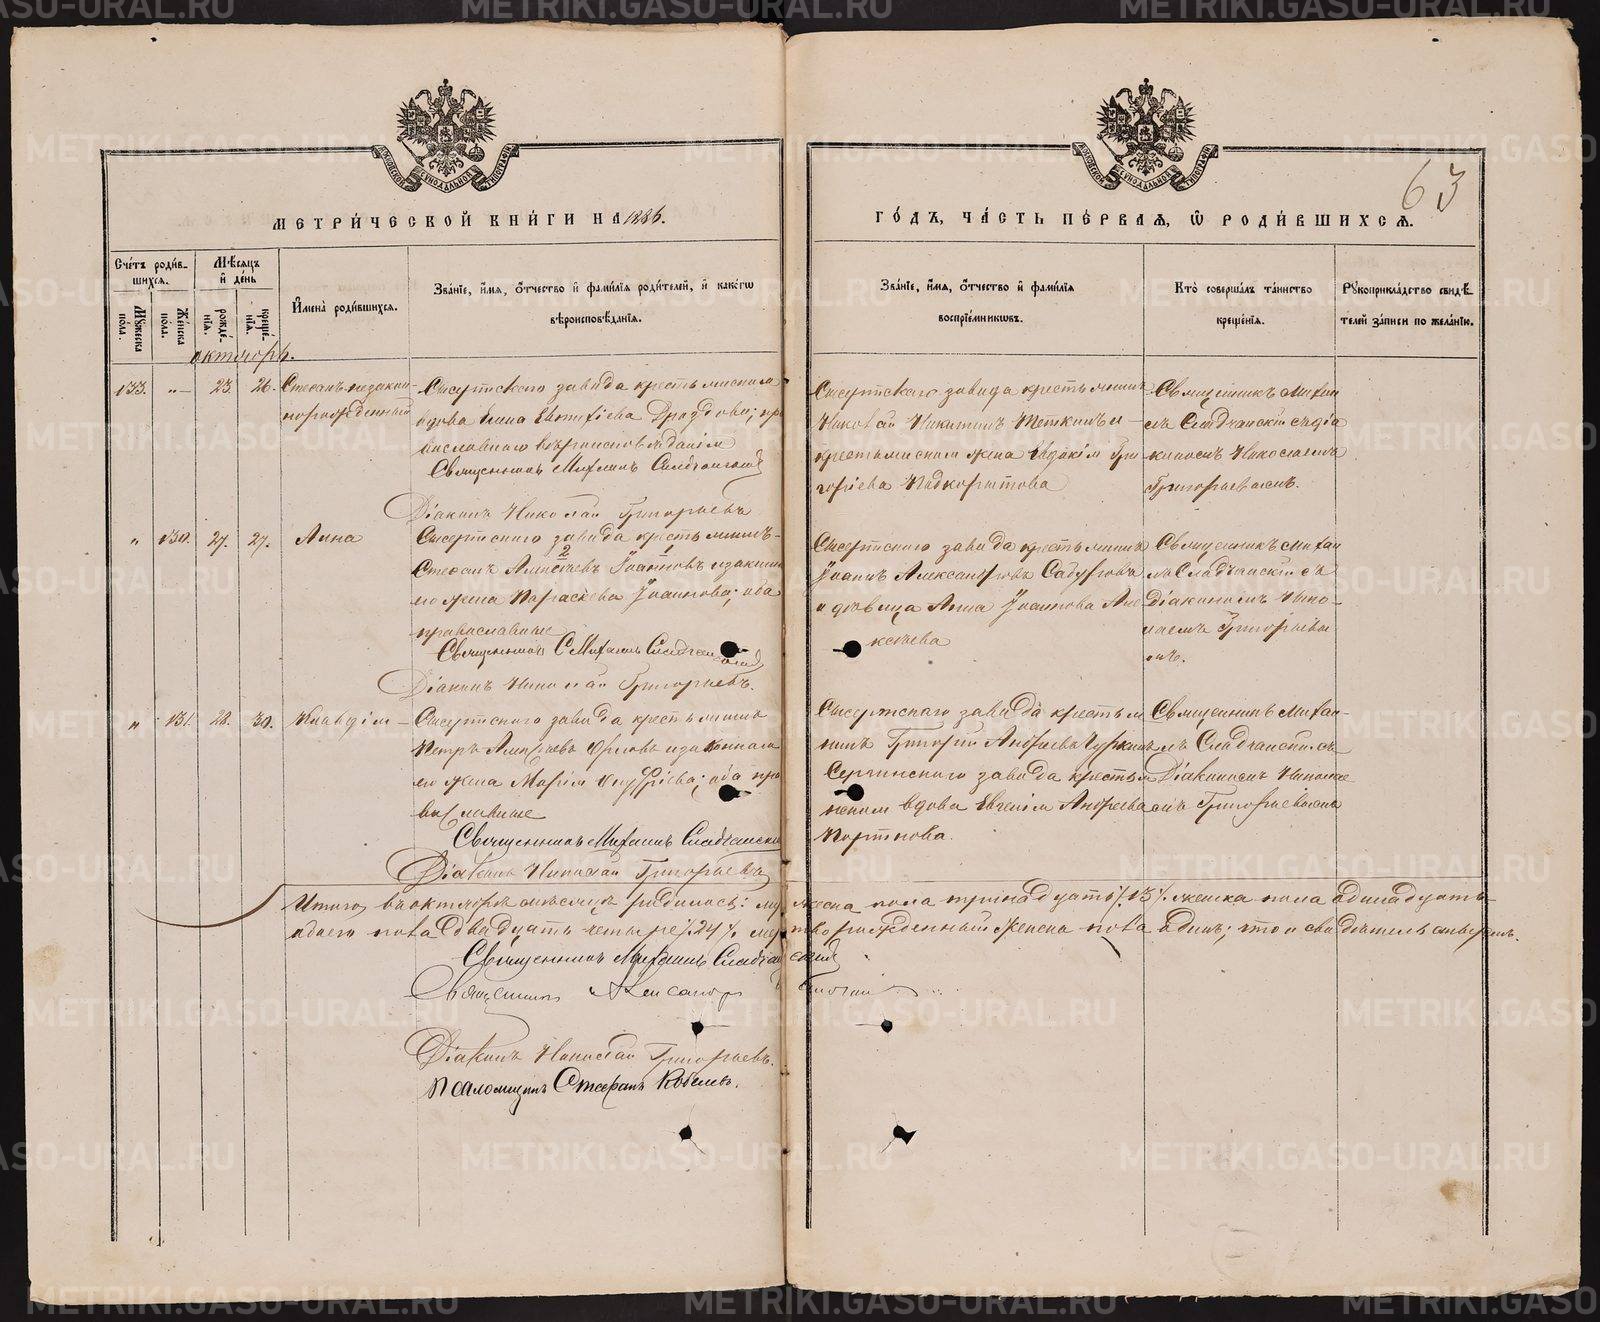 63
МЕТРИ́ЧЕСКОЙ КНИ́ГИ НА 1886.
ГО́ДЪ, ЧА́СТЬ ПЕ́РВАѦ, Ѡ РОДИ́ВШИХСѦ.
Сче́тъ роди́в-
шихсѧ.
Мꙋжеска по́ла.
Же́нска по́ла.
Мѣ́сѧцъ и҆ де́нь
рожде́-нїѧ.
креще́-нїѧ.
И҆мена̀ роди́вшихсѧ.
Зва́нїе, и҆́мѧ, ѻ҆́тчество и҆ фами́лїѧ роди́телей, и҆ како́гѡ
вѣроисповѣ́данїѧ.
Зва́нїе, и҆́мѧ, ѻ҆́тчество и҆ фами́лїѧ
воспрїе́мникѡвъ.
Кто̀ соверша́лъ та́инство
креще́нїѧ.
Рꙋкоприкла́дство свидѣ́-
телей за́писи по жела́нїю.
октябрь.
133. „ 23. 26. Стефанъ незакон-
норожденный
Сысертскаго завода крестьянская
вдова Анна Евтихіева Дроздова; пра
вославнаго вѣроисповѣданія
Священникъ Михаилъ Сладчанскій
Діаконъ Николай Григорьевъ
Сысертскаго завода крестьянинъ
Николай Никитинъ Теткинъ и
крестьянская жена Евдокія Гри
горіева Надкорытова
Священникъ Михаи
лъ Сладчанскій съ діа
кономъ Николаемъ
Григорьевымъ.
„ 130. 27. 27. Анна
Сысертскаго завода крестьянинъ
Стефанъ Алексѣевъ Іоанновъ и законная
его жена Параскева Іоаннова; оба
православные
Священникъ Михаилъ Сладчанскій
Діаконъ Николай Григорьевъ.
Сысертскаго завода крестьянинъ
Іоаннъ Александровъ
и дѣвица Анна Іоаннова Але
ксѣева
Священникъ Михаи
лъ Сладчанскій съ
Діакономъ Нико-
лаемъ Григорьевы
мъ.
„ 131. 28. 30. Клавдія
Сысертскаго завода крестьянинъ
Петръ Алексѣевъ и законная
его жена Марія Онуфріева; оба пра
вославные
Священникъ Михаилъ Сладчанскій
Діаконъ Николай Григорьевъ
Сысертскаго завода крестья
нинъ Григорій Андреевъ
Сергинскаго завода крестья
нская вдова Евгенія Андреева
Портнова.
Священникъ Михаи-
лъ Сладчанскій съ
Діакономъ Никола
емъ Григорьевымъ
Итого въ октябрѣ мѣсяцѣ родилось: мужеска пола тринадцать /.13/. женска пола одинадцать
обоего пола двадцать четыре /.24/. мертворожденный женска пола одинъ; что и свидѣтельствуемъ.
Священникъ Михаилъ Сладчанскій
Священникъ Александръ
Діаконъ Николай Григорьевъ.
Псаломщикъ Стефанъ
METRIKI.GASO-URAL.RU